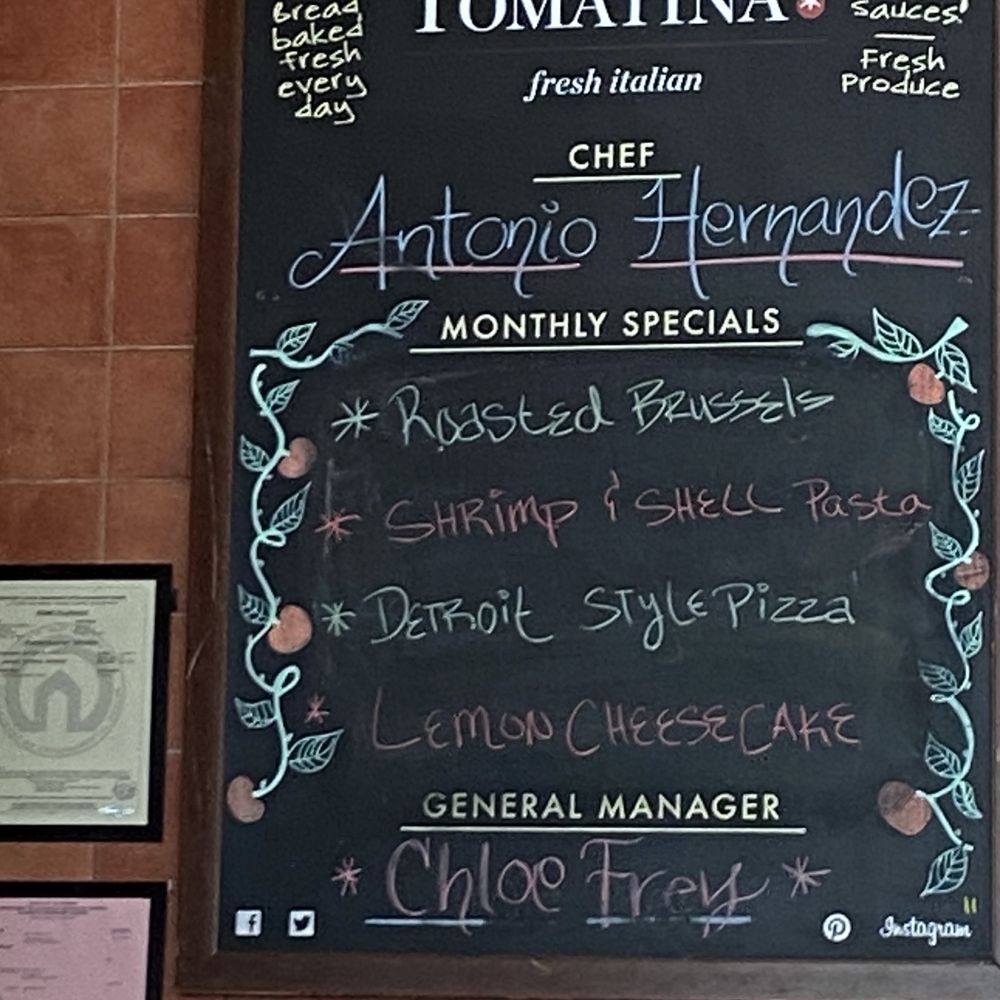 Bread
baked
fresh
every
day
TOMATINA
sauces!
Fresh
Produce
fresh italian
CHEF
Antonio Hernandez
MONTHLY SPECIALS
* Roasted BRUSSEls
* SHRimp & SHELL Pasta
* DETROit STYLE Pizza
* LEMON CHEESECAKE
GENERAL MANAGER
* Chloe Frey *
Instagram